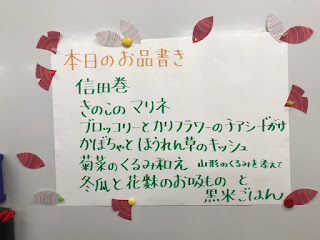 本日のお品書き
信田巻
きのこのマリネ
ブロッコリーとカリフラワーのチアシードがけ
かぼちゃとほうれん草のキッシュ
菊菜のくるみ和え 山形のくるみを添えて
冬瓜と花麩のお吸もの と
黒米ごはん